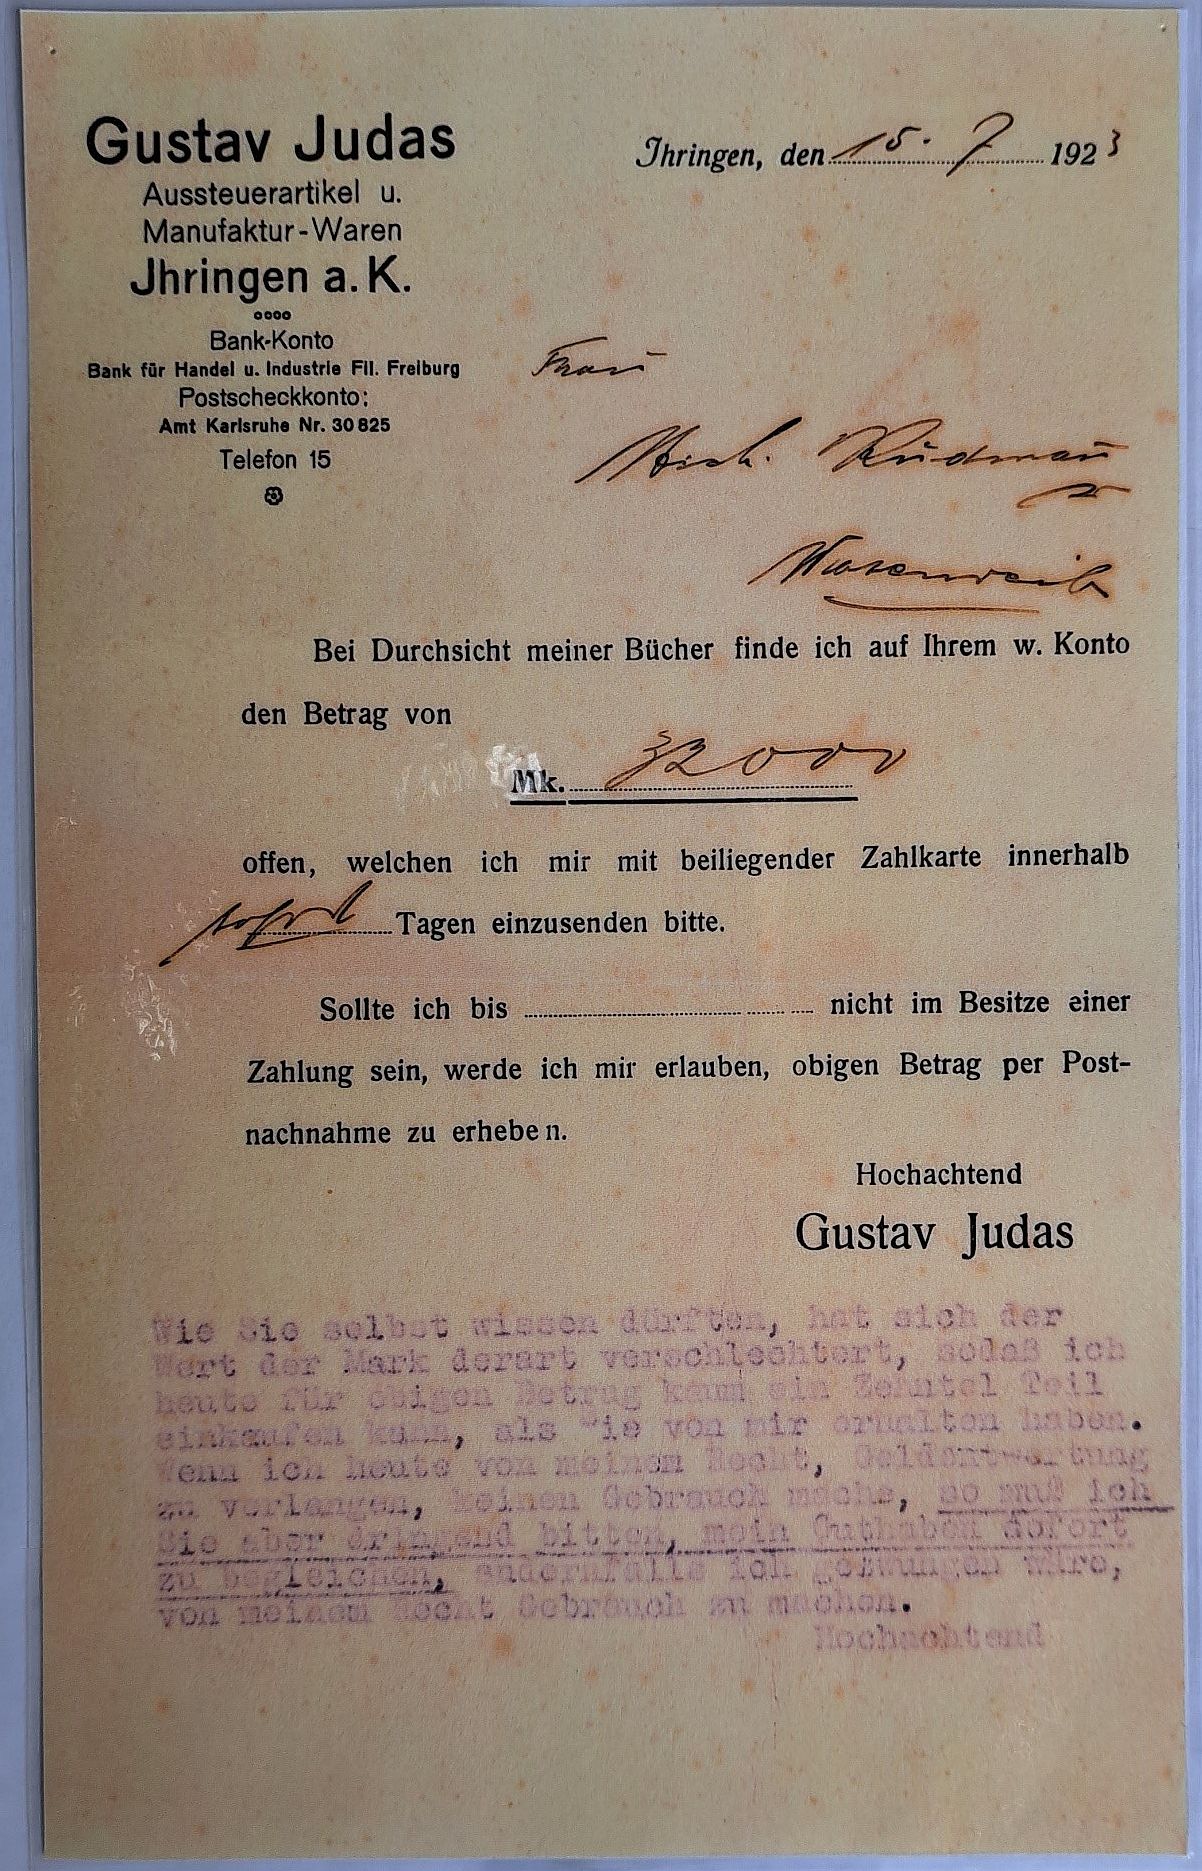 Gustav Judas
Aussteuerartikel u.
Manufaktur-Waren
Jhringen a. K.
Bank-Konto
Bank für Handel u. Industrie Fil. Freiburg
Postscheckkonto:
Amt Karlsruhe Nr. 30825
Telefon 15
Jhringen, den 15. 7 1923
Frau
Wasenweil
Bei Durchsicht meiner Bücher finde ich auf Ihrem w. Konto
den Betrag von
Mk. 32000
offen, welchen ich mir mit beiliegender Zahlkarte innerhalb
sofort Tagen einzusenden bitte.
Sollte ich bis nicht im Besitze einer
Zahlung sein, werde ich mir erlauben, obigen Betrag per Post-
nachnahme zu erheben.
Hochachtend
Gustav Judas
Wie Sie selbst wissen dürften, hat sich der
Wert der Mark derart verschlechtert, sodaß ich
heute für obigen Betrag kaum ein Zehntel Teil
einkaufen kann, als Sie von mir erhalten haben.
Wenn ich heute von meinen Recht, Geldentwertung
zu verlangen, keinen Gebrauch mache, so muß ich
Sie aber dringend bitten, mein Guthaben sofort
zu begleichen, andernfalls ich gezwungen wäre,
von meinem Recht Gebrauch zu machen.
Hochachtend